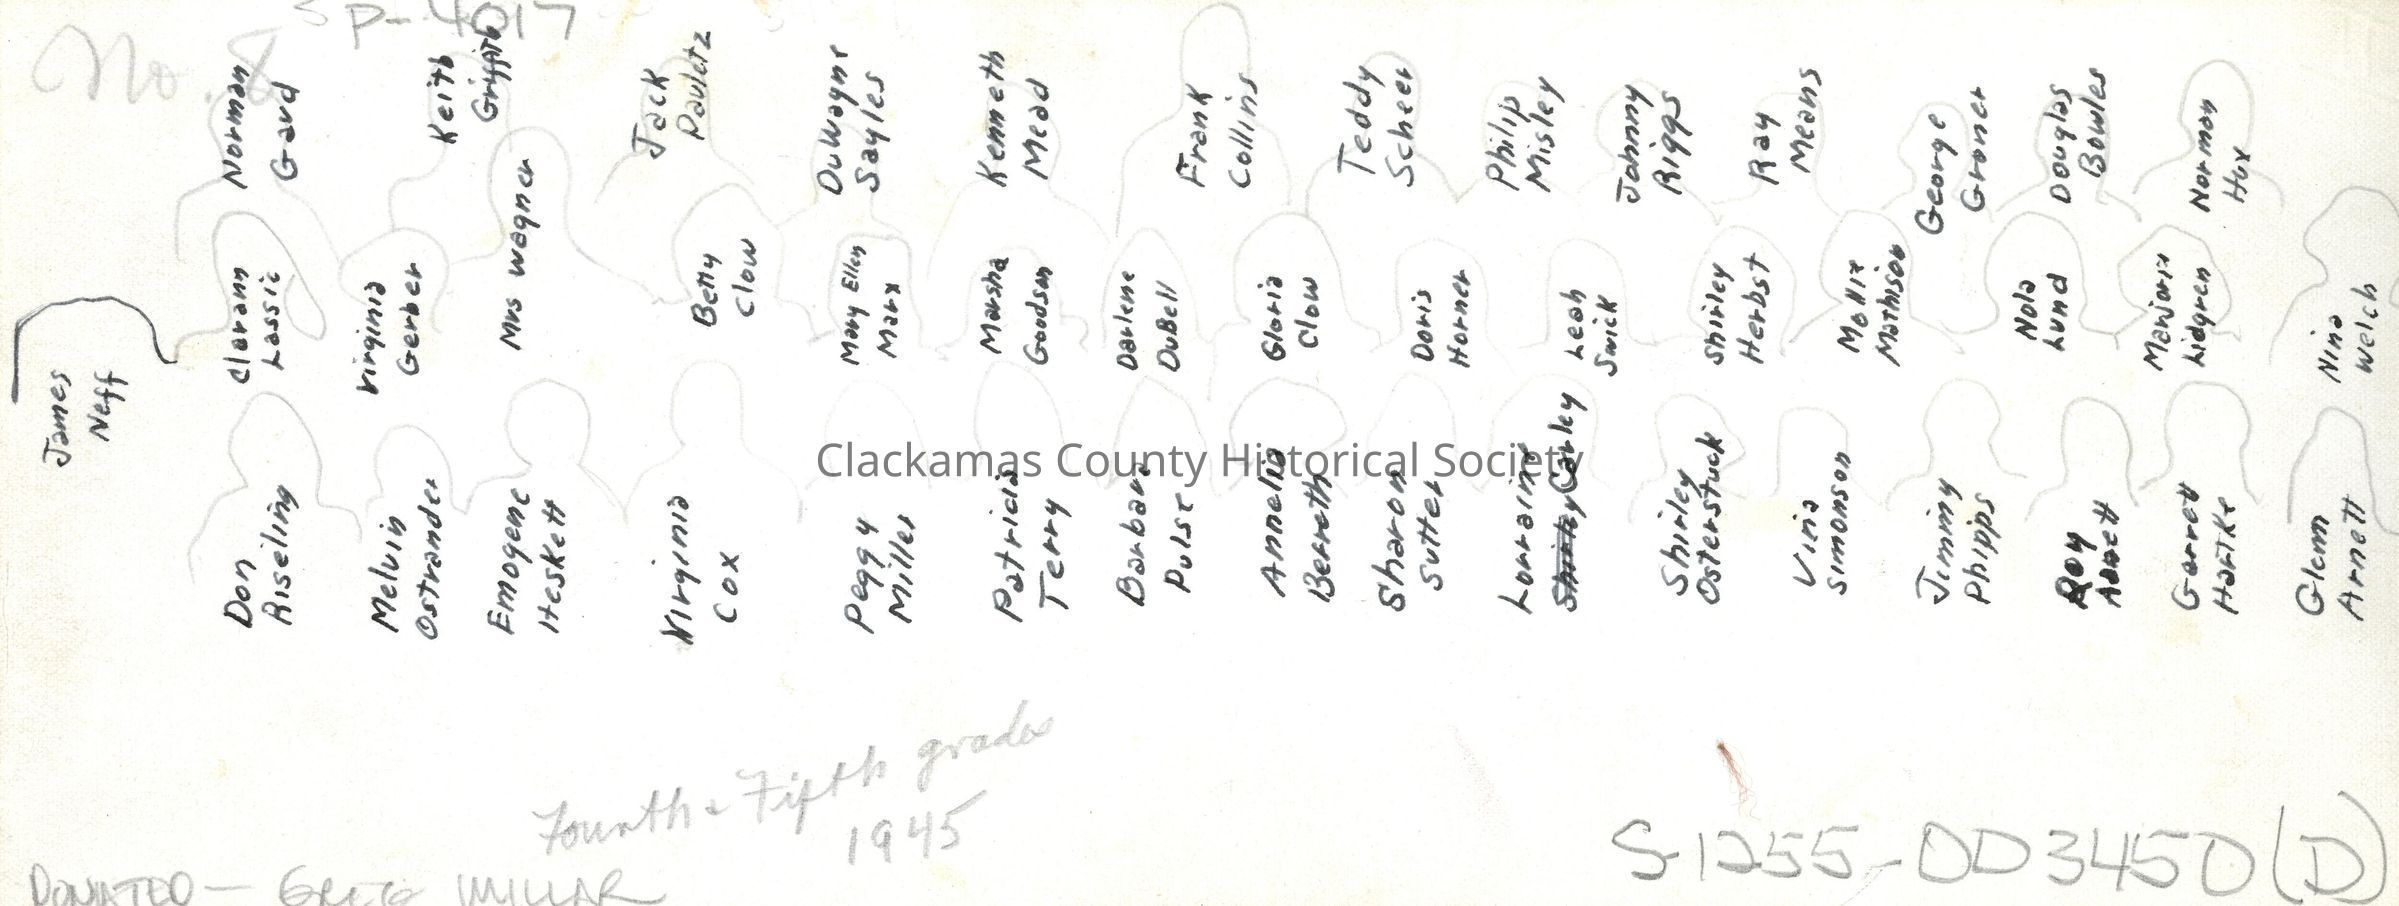 P-4017
No. 8
Norman
Gard
Keith
Griffith
Jack
Pauletz
DuWayne
Sayles
Kenneth
Mead
Frank
Collins
Teddy
Scheer
Philip
Misley
Johnny
Riggs
Ray
Means
George
Groner
Douglas
Bowles
Norman
Hux
James
Neff
Clarann
Lassie
Virginia
Gerber
Mrs Wagner
Betty
Clow
Mary Ellen
Marx
Marsha
Goodson
Darlene
DuBell
Gloria
Clow
Doris
Horner
Leah
Swick
Shirley
Herbst
Mollie
Mathison
Nola
Lund
Marjorie
Lidgren
Nina
Welch
Clackamas County Historical Society
Don
Riseling
Melvin
Ostrander
Emogene
Heskett
Virginia
Cox
Peggy
Miller
Patricia
Terry
Barbara
Pulse
Annelia
Berreth
Sharon
Sutter
Lorraine
Shirley Carley
Shirley
Osterstuck
Viria
Simonson
Jimmy
Phipps
Roy
Garrett
Hartke
Glenn
Arnett
Fourth & Fifth grades
1945
S-1255-OD3450(D)
DONATED - GREG MILLAR